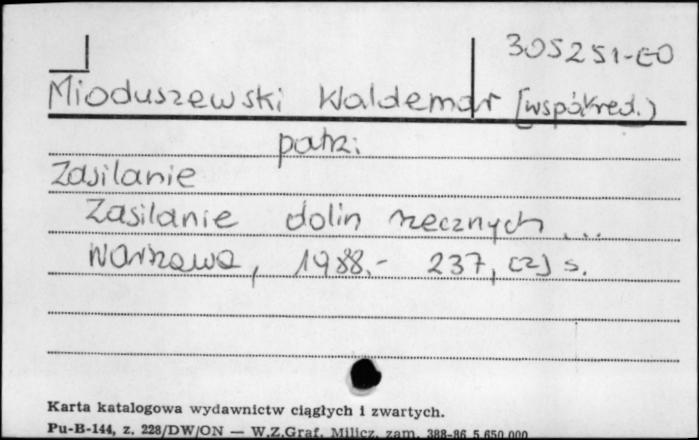 305251-CO
Mioduszewski Waldemar [współred.)
patrz:
Zasilanie
Zasilanie dolin rzecznych ...
Warszawa, 1988.- 237, [2] s.
Karta katalogowa wydawnictw ciągłych i zwartych.
Pu-B-144, z. 228/DW/ON — W.Z.Graf. Milicz, zam. 388-86 5.650.000